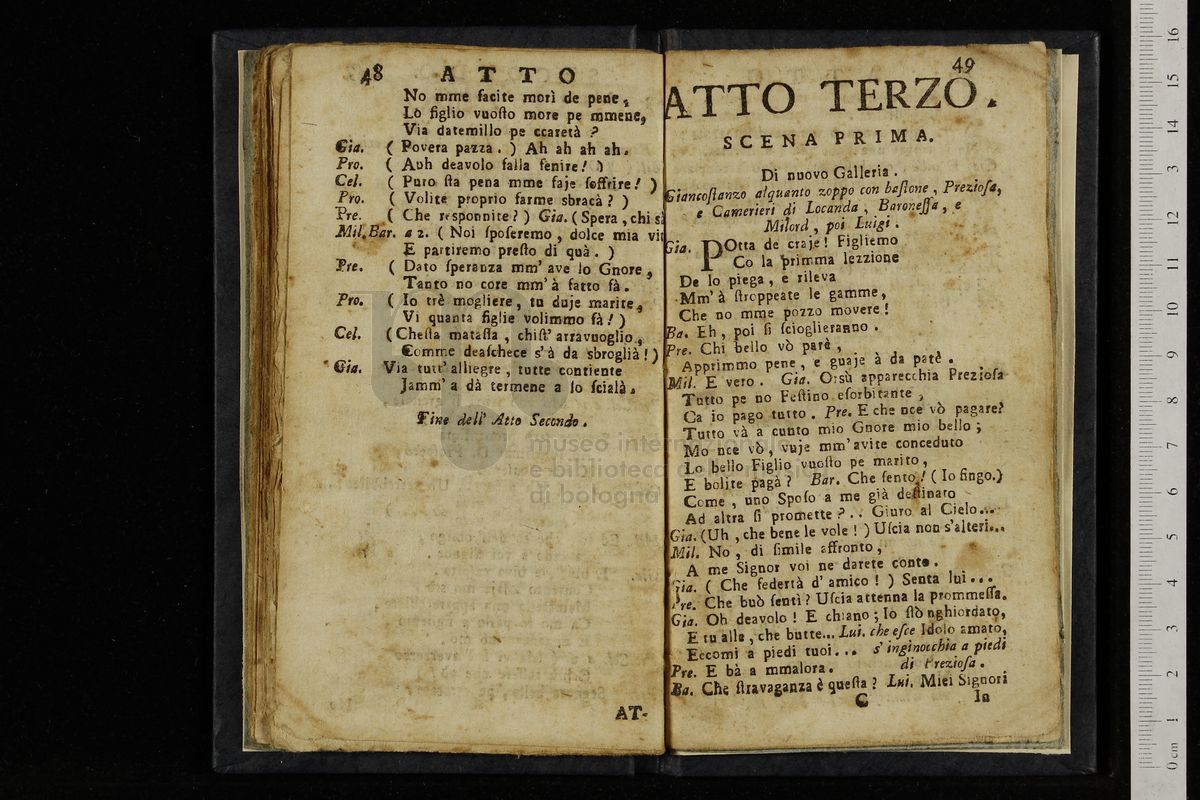 48 ATTO
No mme facite morì de pene,
Lo figlio vuosto more pe mmene,
Via datemillo pe ccaretà ?
Gia. ( Povera pazza . ) Ah ah ah ah.
Pro. ( Auh deavolo falla fenire ! )
Cel. ( Puro sta pena mme faje soffrire ! )
Pro. ( Volite proprio farme sbracà ? )
Pre. ( Che responnite ? ) Gia. ( Spera , chi sà
Mil. Bar. a 2. ( Noi sposeremo , dolce mia vit
E partiremo presto di quà . )
Pre. ( Dato speranza mm' ave lo Gnore,
Tanto no core mm' à fatto fà.
Pro. ( Io trè mogliere, tu duje marite,
Vi quanta figlie volimmo fà ! )
Cel. ( Chesta matassa , chist' arravuoglio,
Comme deaschece s' à da sbroglià ! )
Gia. Via tutt' alliegre , tutte contiente
Jamm' a dà termene a lo scialà.
Fine dell' Atto Secondo.
AT-
49
ATTO TERZO.
SCENA PRIMA.
Di nuovo Galleria.
Giancostanzo alquanto zoppo con bastone, Preziosa,
e Camerieri di Locanda, Baronessa, e
Milord, poi Luigi.
Gia. POtta de craje ! Figliemo
Co la primma lezzione
De lo piega, e rileva
Mm' à stroppeate le gamme,
Che no mme pozzo movere !
Ba. Eh, poi si scioglieranno.
Pre. Chi bello vò parè,
Apprimmo pene, e guaje à da patè.
Mil. E vero. Gia. Orsù apparecchia Preziosa
Tutto pe no Festino esorbitante,
Ca io pago tutto. Pre. E che nce vò pagare?
Tutto và a cunto mio Gnore mio bello ;
Mo nce vò, vuje mm' avite conceduto
Lo bello Figlio vuosto pe marito,
E bolite pagà ? Bar. Che sento ! ( Io fingo.)
Come, uno Sposo a me già destinato
Ad altra si promette ? . . Giuro al Cielo...
Gia. (Uh, che bene le vole ! ) Uscia non s'alteri...
Mil. No, di simile affronto,
A me Signor voi ne darete conto.
Gia. ( Che federtà d' amico ! ) Senta lui...
Pre. Che buò sentì ? Uscia attenna la prommessa.
Gia. Oh deavolo ! E chiano ; Io stò nghiordato,
E tu alla, che butte... Lui. che esce Idolo amato,
Eccomi a piedi tuoi... s' inginocchia a piedi
Pre. E bà a mmalora. di Preziosa.
Ba. Che stravaganza è questa ? Lui. Miei Signori
C In
museo internazionale
e biblioteca della musica
di bologna
0 cm 1 2 3 4 5 6 7 8 9 10 11 12 13 14 15 16